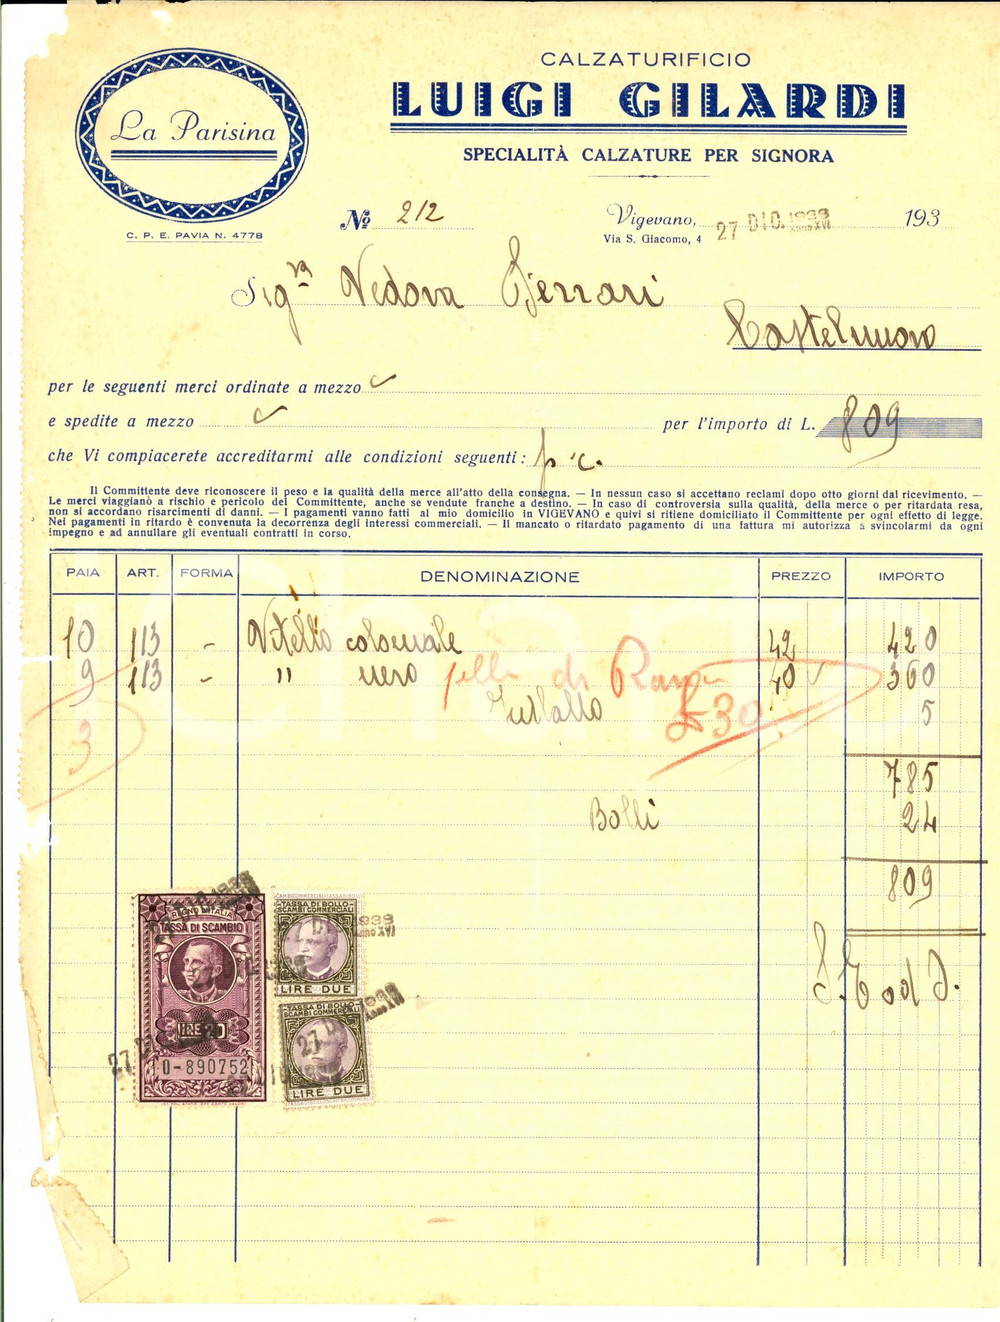 La Parisina
C. P. E. PAVIA N. 4778
CALZATURIFICIO
LUIGI GILARDI
SPECIALITÀ CALZATURE PER SIGNORA
№ 212
Vigevano, 27 DIC. 1938 193
Via S. Giacomo, 4
Sig.ra Vedova Ferrari
Castelnuovo
per le seguenti merci ordinate a mezzo
e spedite a mezzo per l'importo di L. 809
che Vi compiacerete accreditarmi alle condizioni seguenti: p. c.
Il Committente deve riconoscere il peso e la qualità della merce all'atto della consegna. — In nessun caso si accettano reclami dopo otto giorni dal ricevimento. —
Le merci viaggiano a rischio e pericolo del Committente, anche se vendute franche a destino. — In caso di controversia sulla qualità, della merce o per ritardata resa,
non si accordano risarcimenti di danni. — I pagamenti vanno fatti al mio domicilio in VIGEVANO e quivi si ritiene domiciliato il Committente per ogni effetto di legge.
Nei pagamenti in ritardo è convenuta la decorrenza degli interessi commerciali. — Il mancato o ritardato pagamento di una fattura mi autorizza a svincolarmi da ogni
impegno e ad annullare gli eventuali contratti in corso.
PAIA ART. FORMA DENOMINAZIONE PREZZO IMPORTO
10 113 - Vitello coloniale 42 420
9 113 - " nero 40 360
pelle di
3 Imballo £ 30 5
785
Bolli 24
809
S. E. o d J.
REGNO D'ITALIA
TASSA DI SCAMBIO
LIRE 20
0-890752
TASSA DI BOLLO
SCAMBI COMMERCIALI
LIRE DUE
TASSA DI BOLLO
SCAMBI COMMERCIALI
LIRE DUE
27 DIC. 1938